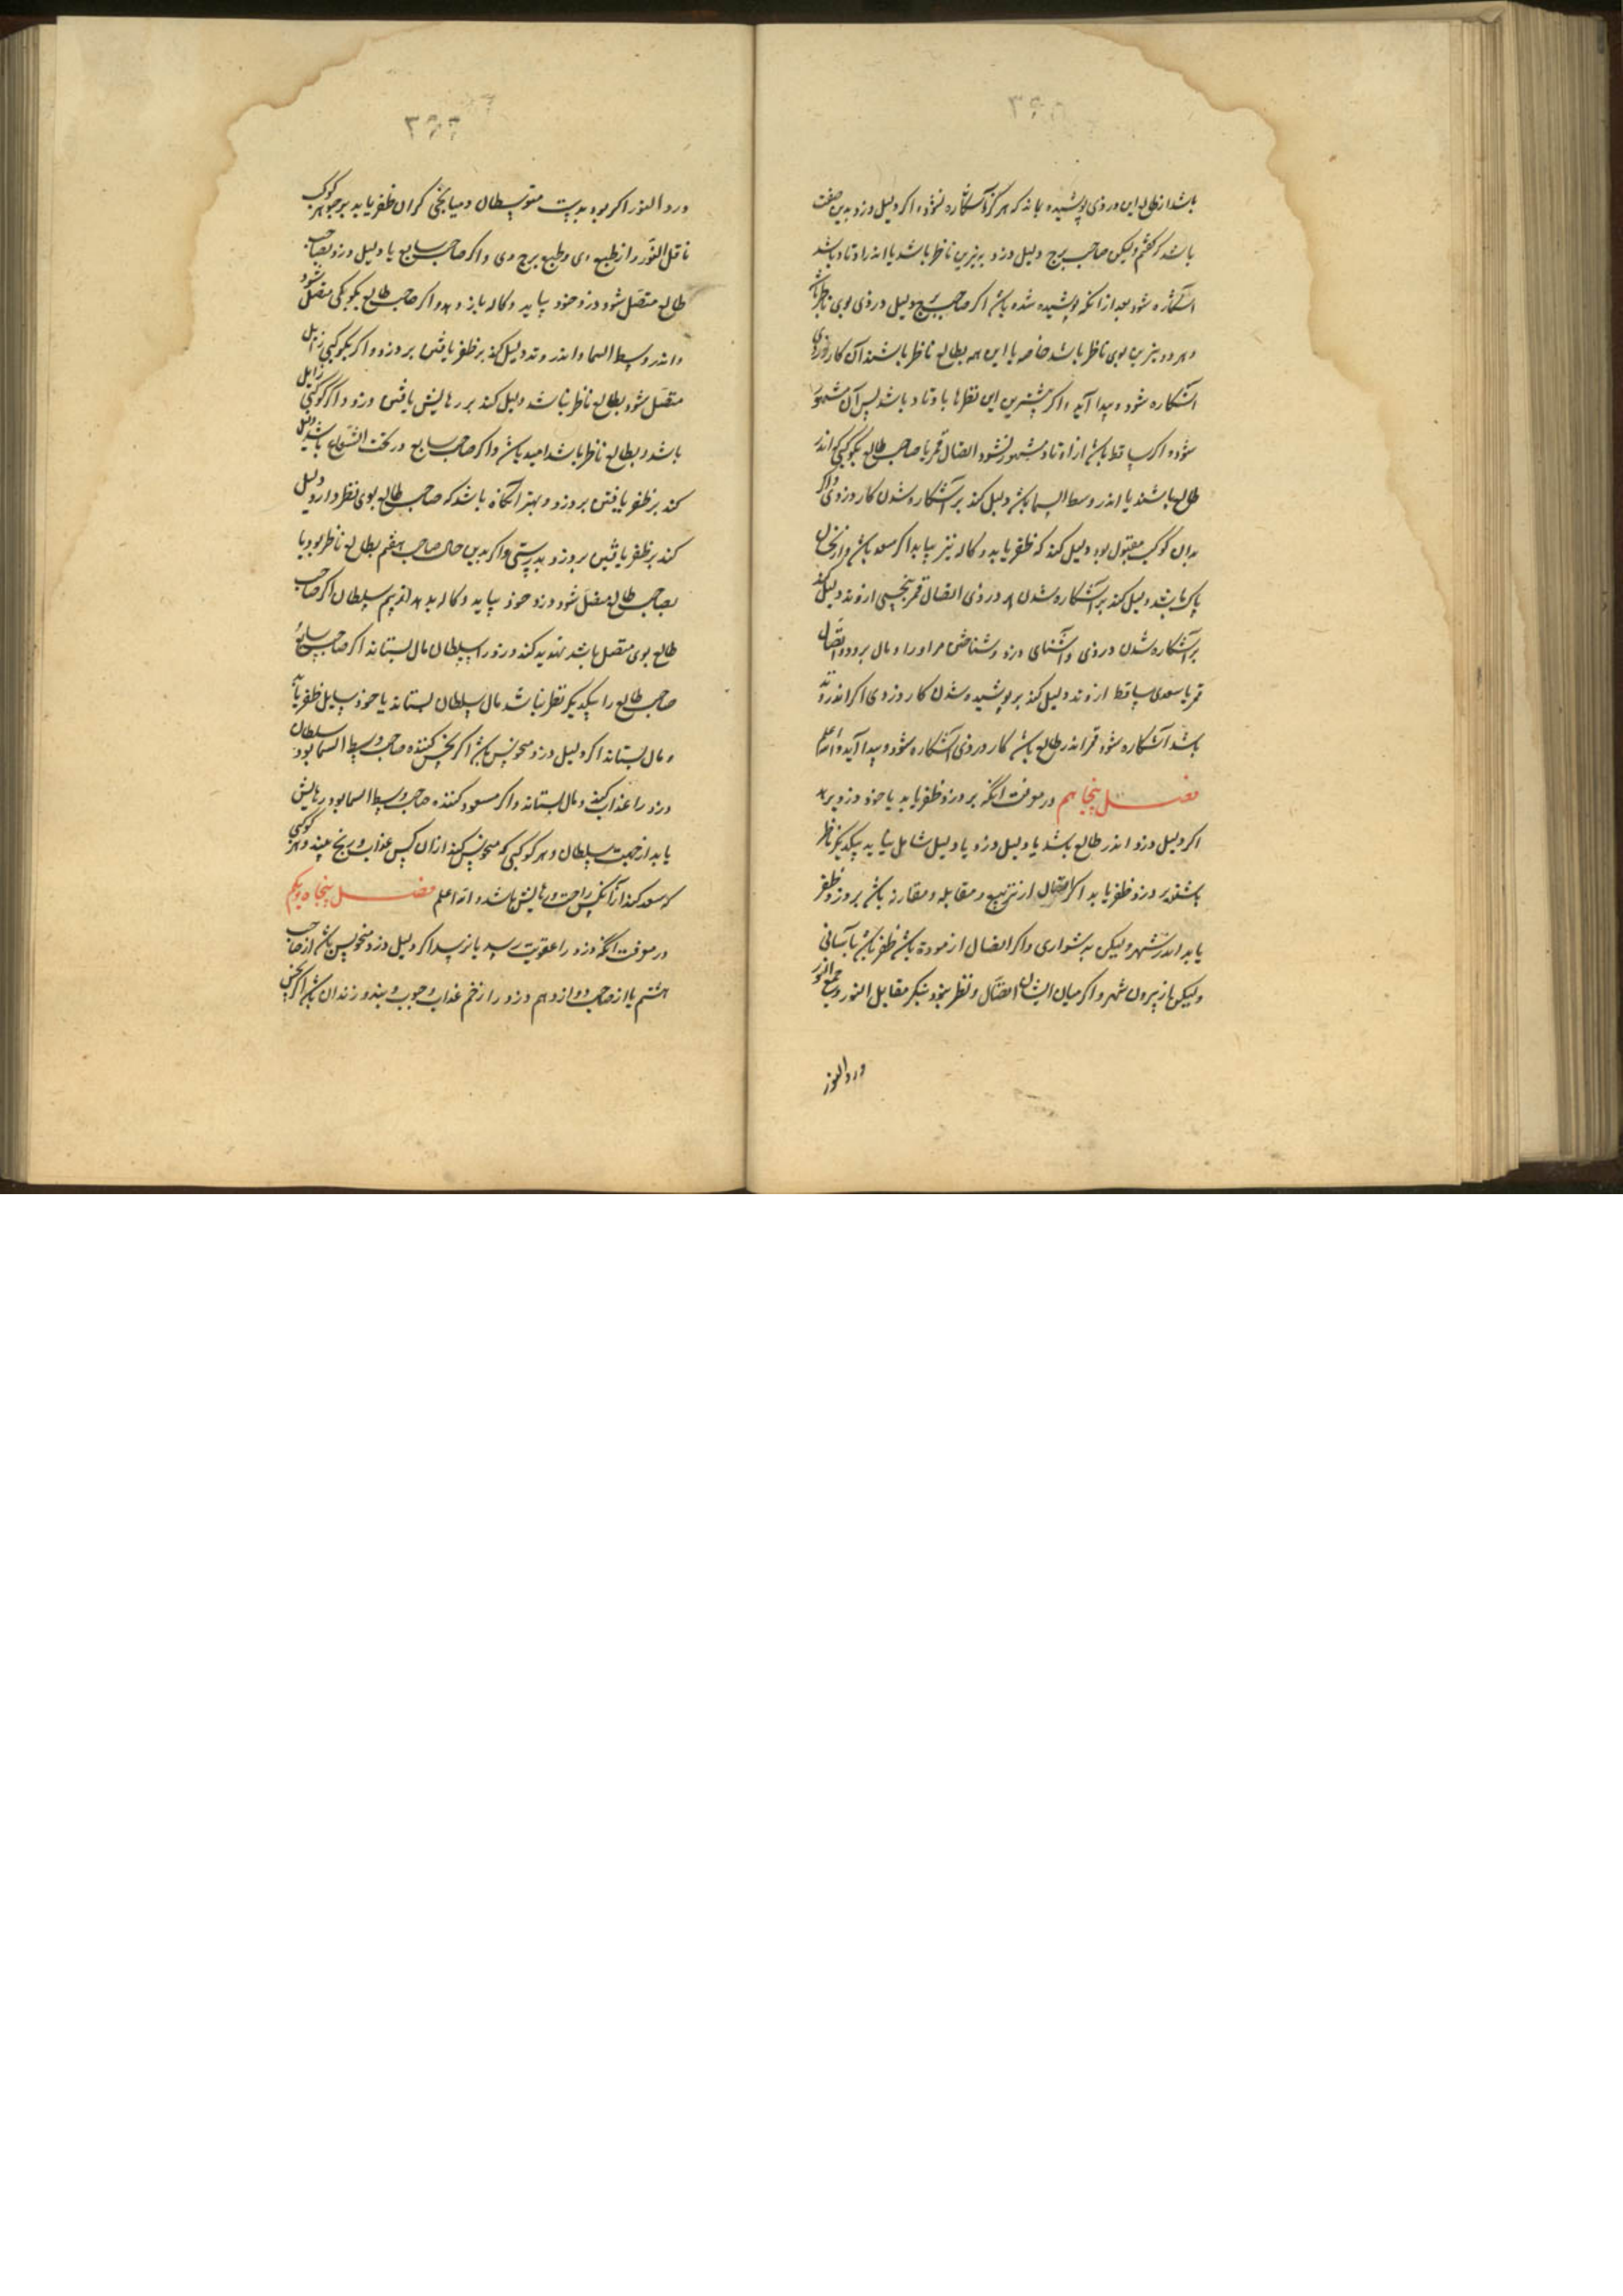 ۳۶۵
باشد از طالع این دزدی پوشیده بماند که هرگز آشکاره نشود و اگر دلیل دزد بدین صفت
باشد که گفتم ولیکن صاحب برج دلیل دزد بنیرین ناظر باشد یا اندر اوتاد باشد
آشکاره شود بعد از آنکه پوشیده شده باشد اگر صاحب برج دلیل دزدی بوی ناظر باشد
و هر دو نیرین بوی ناظر باشد خاصه با این همه بطالع ناظر باشند آن کار دزدی
آشکاره شود و پیدا آید و اگر بیشترین این نظرها باوتاد باشد پس آن مشهور
شود و اگر ساقط باشد از اوتاد مشهور نشود اتصال قمر یا صاحب طالع بکوکبی که اندر
طالع باشند یا اندر وسط السما باشد دلیل کند بر آشکاره شدن کار دزدی و اگر
بدان کوکب مقبول بود دلیل کند که ظفر یابد و کاله نیز بیابد اگر مسعود باشد و از نحسان
پاک باشد دلیل کند بر آشکاره شدن دزدی اتصال قمر بنحسی از وتد دلیل کند
بر آشکاره شدن دزدی و آشنای دزد و شناختن مر او را و مال برود و اتصال
قمر با سعدی ساقط از وتد دلیل کند بر پوشیده شدن کار دزدی اگر اندر وتد
باشد آشکاره شود قمر اندر طالع باشد کار دزدی آشکاره شود و پیدا آید والله اعلم
فصل پنجاهم در معرفت انکه بر دزد ظفر یابد یا خود دزد برد
اگر دلیل دزد اندر طالع باشد یا دلیل دزد با دلیل شایل بیابد بیکدیگر ناظر
باشند بر دزد ظفر یابد اگر اتصال از تربیع و مقابله و مقارنه باشد بر دزد ظفر
یابد اندر شهر ولیکن بدشواری و اگر اتصال از مودة باشد ظفر باشد بآسانی
ولیکن از بیرون شهر و اگر میان ایشان اتصال و نظر نبود بنکر مقابل النور و جمع النور
ورد النور
۳۶۶
ورد النور اگر بود بدست متوسطان و میانجی گران ظفر یابد بر جوهر کوکب
ناقل النور و از طبع وی و طبع برج وی و اگر صاحب سابع یا دلیل دزد بصاحب
طالع متصل شود دزد خود بیاید و کاله باز دهد و اگر صاحب طالع بکوکبی متصل شود
و اندر وسط السما و اندر وتد دلیل کند بر ظفر یافتن بر دزد و اگر بکوکبی زایل
متصل شود بطالع ناظر نباشد دلیل کند بر رهایش یافتن دزد و اگر کوکبی زایل
باشد و بطالع ناظر باشد امید باشد و اگر صاحب سابع در تحت الشعاع باشد دلیل
کند بر ظفر یافتن بر دزد و بهتر آنگاه باشد که صاحب طالع بوی نظر دارد دلیل
کند بر ظفر یافتن بر دزد بدرستی و اگر بدین حال صاحب هفتم بطالع ناظر بود یا
بصاحب طالع متصل شود دزد خود بیاید و کاله بدهد از بیم سلطان اگر صاحب
طالع بوی متصل باشد تهدید کند دزد را سلطان مال بستاند اگر صاحب سابع
صاحب طالع را بیکدیگر نظر نباشد مال سلطان بستاند یا خود سایل ظفر یابد
و مال بستاند اگر دلیل دزد منحوس باشد اگر نحس کننده صاحب وسط السما بود سلطان
دزد را عذاب کند و مال بستاند و اگر مسعود کننده صاحب وسط السما بود رهایش
یابد از جهت سلطان و هر کوکبی که منحوس کند از آن کس عذاب و رنج بیند و هر کوکبی
که مسعد کند از آنکس راحت و رهایش باشد والله اعلم فصل پنجاه و یکم
در معرفت انکه دزد را عقوبت رسد یا نرسد اگر دلیل دزد منحوس باشد از صاحب
هشتم یا از صاحب دوازدهم دزد را زخم عذاب و چوب و بند و زندان باشد اگر نحس